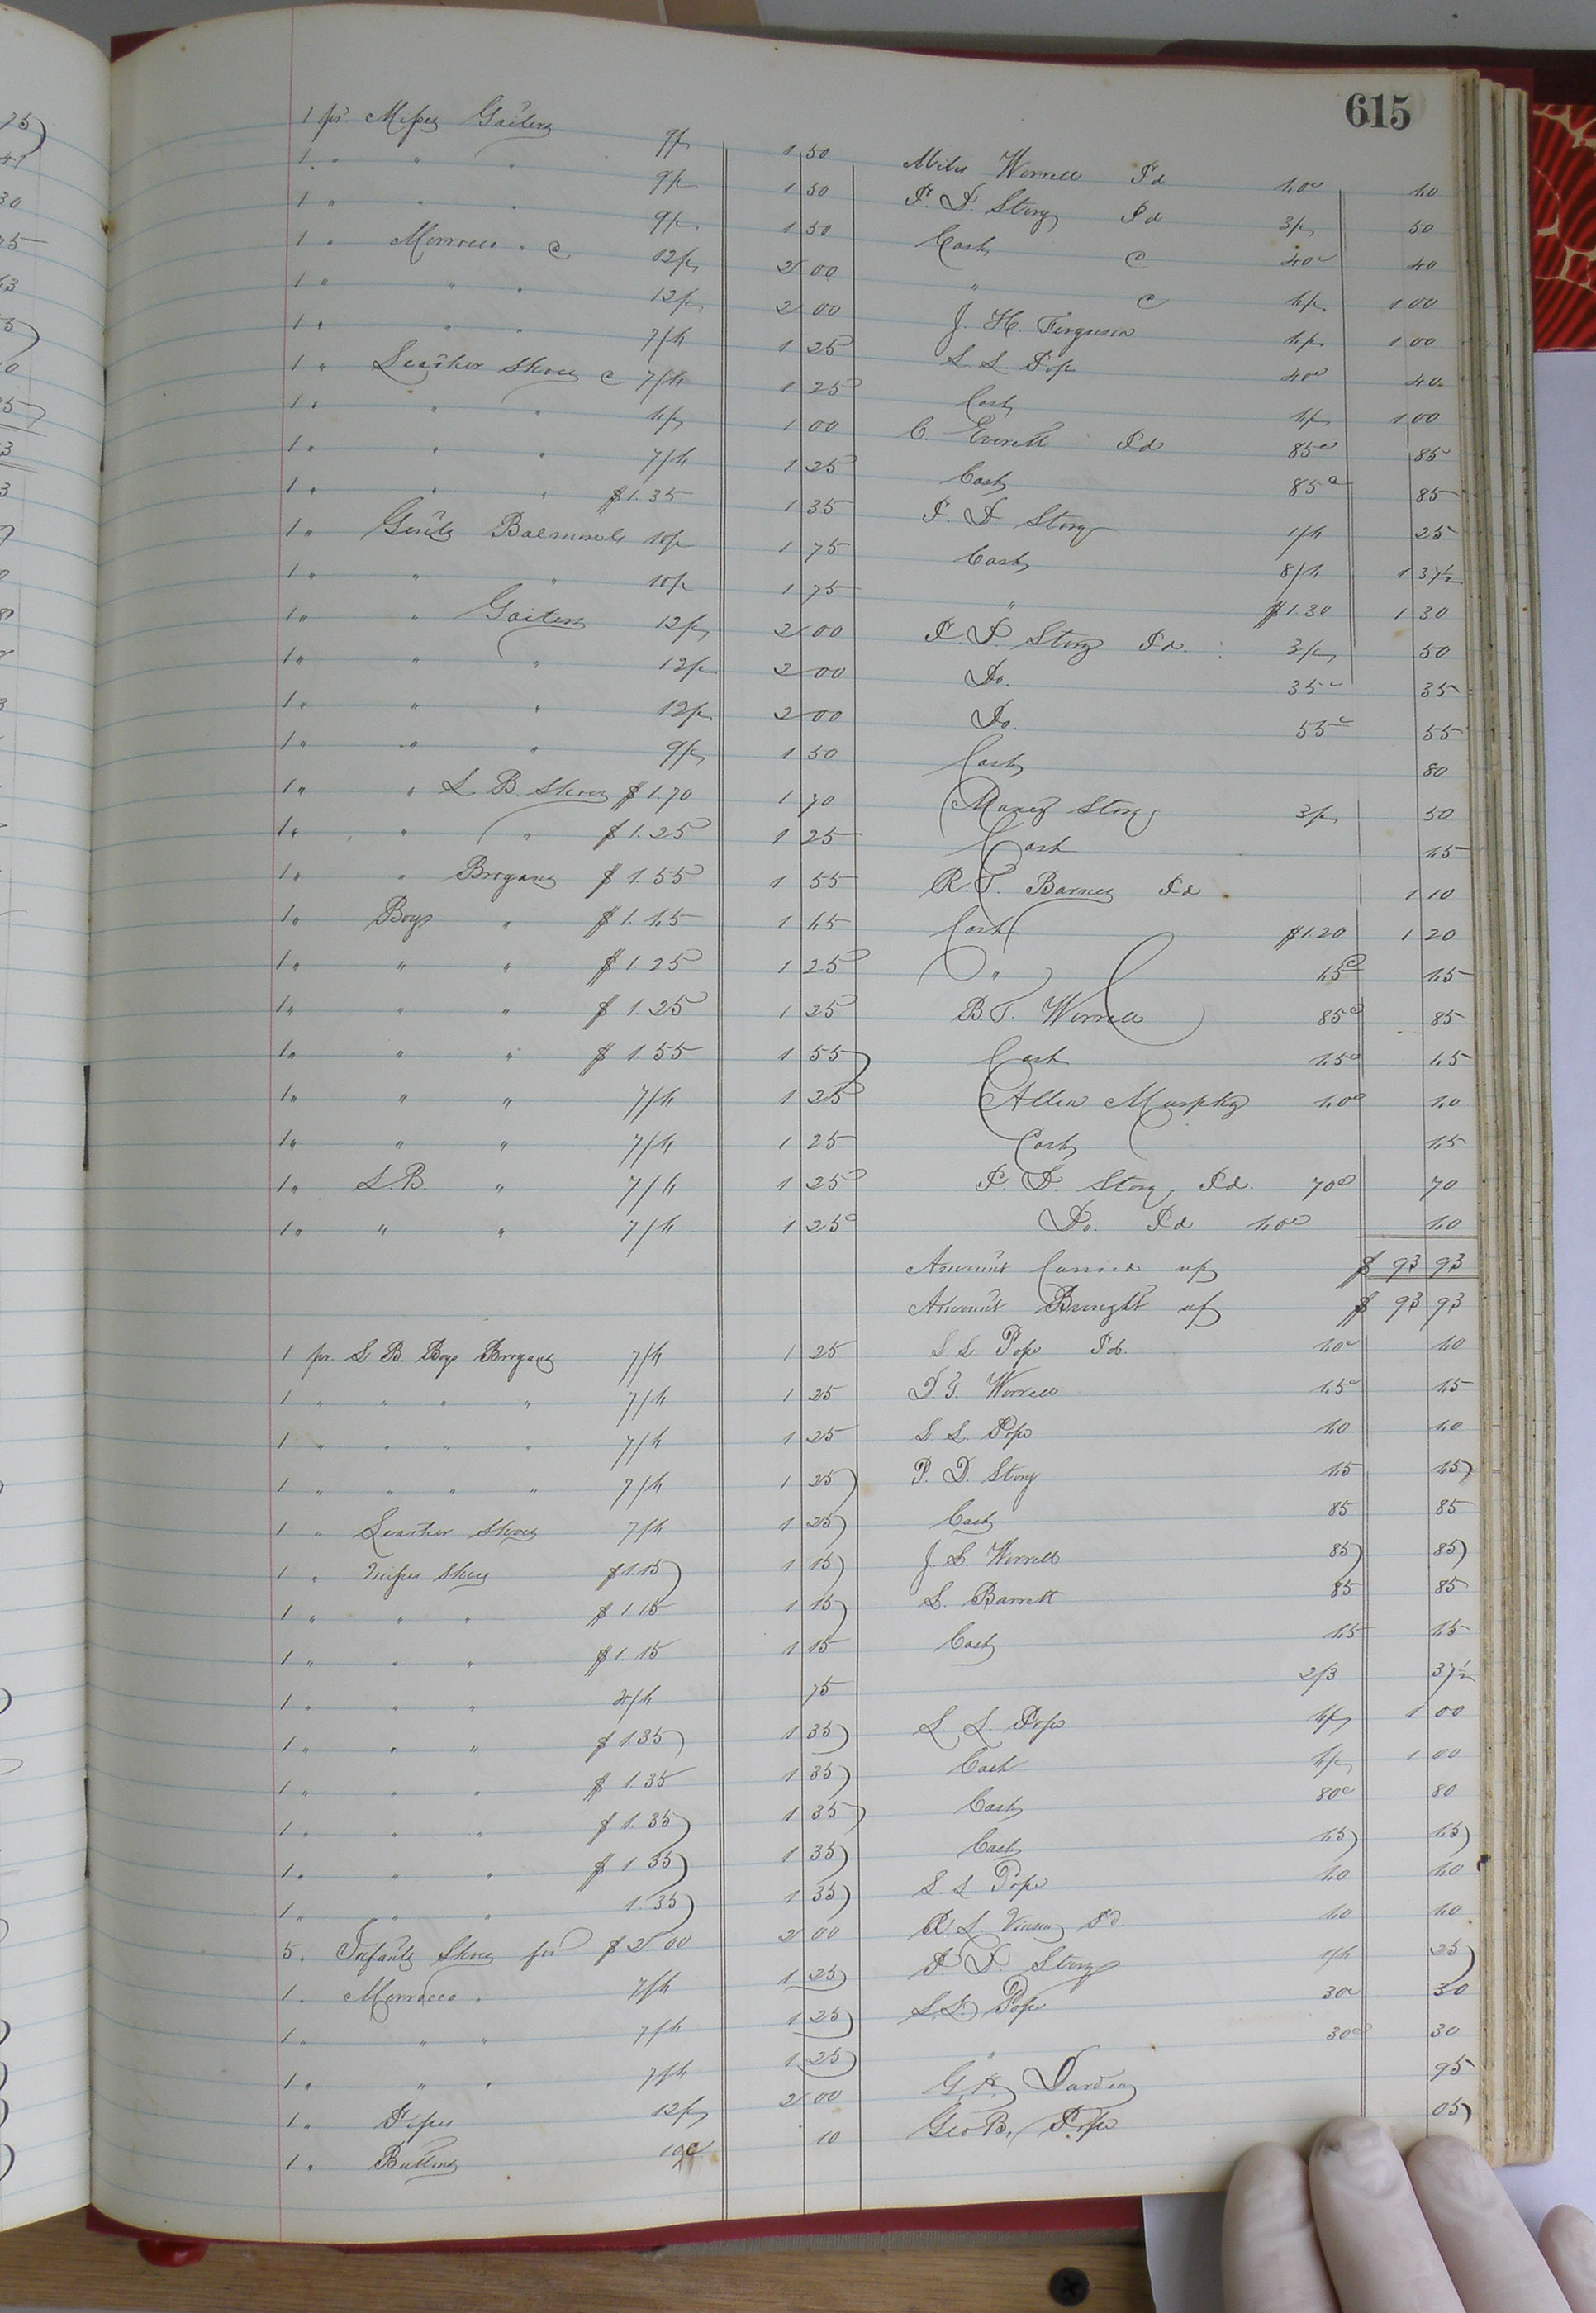 615
1 pr Misses Gaiters 9/ 1 50 Miles Worrell Pd 40c 40
1 " " " 9/ 1 50 P. D. Story Pd 3/ 50
1 " " " 9/ 1 50 Cash c 40c 40
1 " Morrocco " c 12/ 2 00 " c 4/ 1 00
1 " " " 12/ 2 00 J. H. Ferguson 4/ 1 00
1 " " " 7/4 1 25 L. L. Pope 40c 40
1 " Leather Shoes c 7/4 1 25 Cash 4/ 1 00
1 " " " 4/ 1 00 C. Everett Pd 85c 85
1 " " " 7/4 1 25 Cash 85c 85
1 " " " $1.35 1 35 P. D. Story 1/4 25
1 " Gents Balmorals 10/ 1 75 Cash 8/4 1 37½
1 " " " 10/ 1 75 " $1.30 1 30
1 " " Gaiters 12/ 2 00 P. D. Story Pd. 3/ 50
1 " " " 12/ 2 00 Do. 35c 35
1 " " " 12/ 2 00 Do. 55c 55
1 " " " 9/ 1 50 Cash 80
1 " " L. B. Shoes $1.70 1 70 Story 3/ 50
1 " " " $1.25 1 25 Cash 45
1 " " Brogans $1.55 1 55 R. T. Barnes Pd 1 10
1 " Boys " $1.45 1 45 Cash $1.20 1 20
1 " " " $1.25 1 25 " 45c 45
1 " " " $1.25 1 25 B. T. Worrell 85c 85
1 " " " $1.55 1 55 Cash 45c 45
1 " " " 7/4 1 25 Allen Murphy 40c 40
1 " " " 7/4 1 25 Cash 45
1 " L. B. " 7/4 1 25 P. D. Story Pd. 70c 70
1 " " " 7/4 1 25 Do. Pd 40c 40
Amount Carried up $ 93 93
Amount Brought up $ 93 93
1 pr L B Boys Brogans 7/4 1 25 L. L. Pope Pd. 40c 40
1 " " " " 7/4 1 25 Worrell 45c 45
1 " " " " 7/4 1 25 L. L. Pope 40 40
1 " " " " 7/4 1 25 P. D. Story 45 45
1 " Leather Shoes 7/4 1 25 Cash 85 85
1 " Misses Shoes $1.15 1 15 J. L. Worrell 85 85
1 " " " $1.15 1 15 L. Barrett 85 85
1 " " " $1.15 1 15 Cash 45 45
1 " " " 4/4 75 2/3 37½
1 " " " $1.35 1 35 L. L. Pope 4/ 1 00
1 " " " $1.35 1 35 Cash 4/ 1 00
1 " " " $1.35 1 35 Cash 80c 80
1 " " " $1.35 1 35 Cash 45 45
1 " " " 1.35 1 35 L. L. Pope 40 40
5 " Infants Shoes for $2.00 2 00 R. L. Vinson Pd. 40 40
1 " Morrocco " 7/4 1 25 P. D. Story 1/4 25
1 " " " 7/4 1 25 L. L. Pope 30c 30
1 " " " 7/4 1 25 " 30c 30
1 " 12/ 2 00 G. H. Darden 95
1 " Buttons 10c 10 Geo B. Pope 05